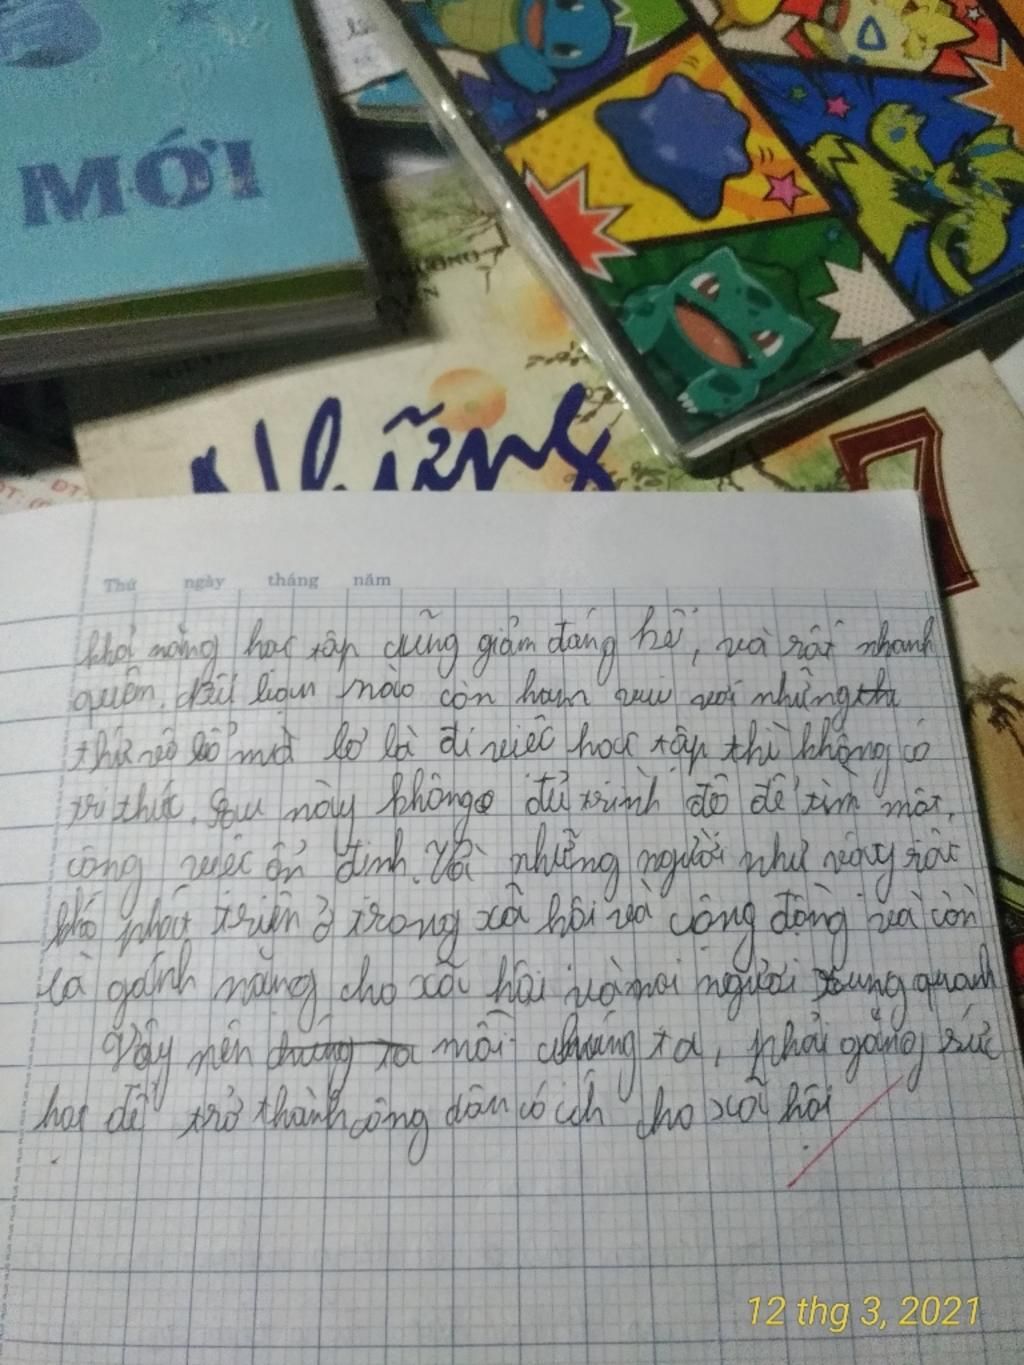 MỚI
Những
7
Thứ ngày tháng năm
khả năng học tập cũng giảm đáng kể, và rất nhanh
quên. còn ham vui với những
thứ vô bổ mà lơ là đi việc học tập thì không có
tri thức. Sau này không đủ trình độ để tìm một
công việc ổn định. Với những người như vậy rất
khó phát triển ở trong xã hội và cộng động và còn
là gánh nặng cho xã hội và mọi người xung quanh
Vậy nên chúng ta mỗi chúng ta, phải gắng sức
học để trở thành công dân có ích cho xã hội
12 thg 3, 2021